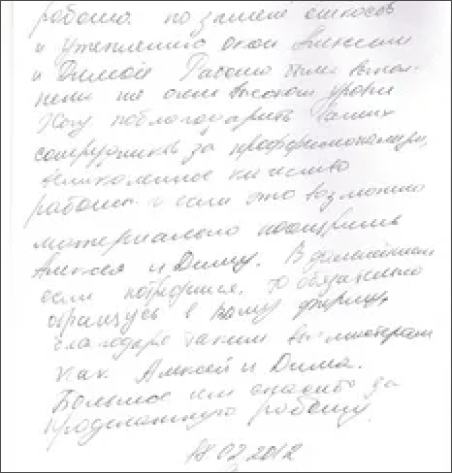 работа по замене откосов
и утеплению окон Алексеем
и Димой. Работы были выпол-
нены на очень высоком уровне
Хочу поблагодарить Ваших
сотрудников за профессионализм,
великолепное качество
работы и если это возможно
материально поощрить
Алексея и Диму. В дальнейшем
если потребуется, то обязательно
обращусь в вашу фирму,
благодаря таким мастерам
как Алексей и Дима.
Большое им спасибо за
проделанную работу.
18 02 2012